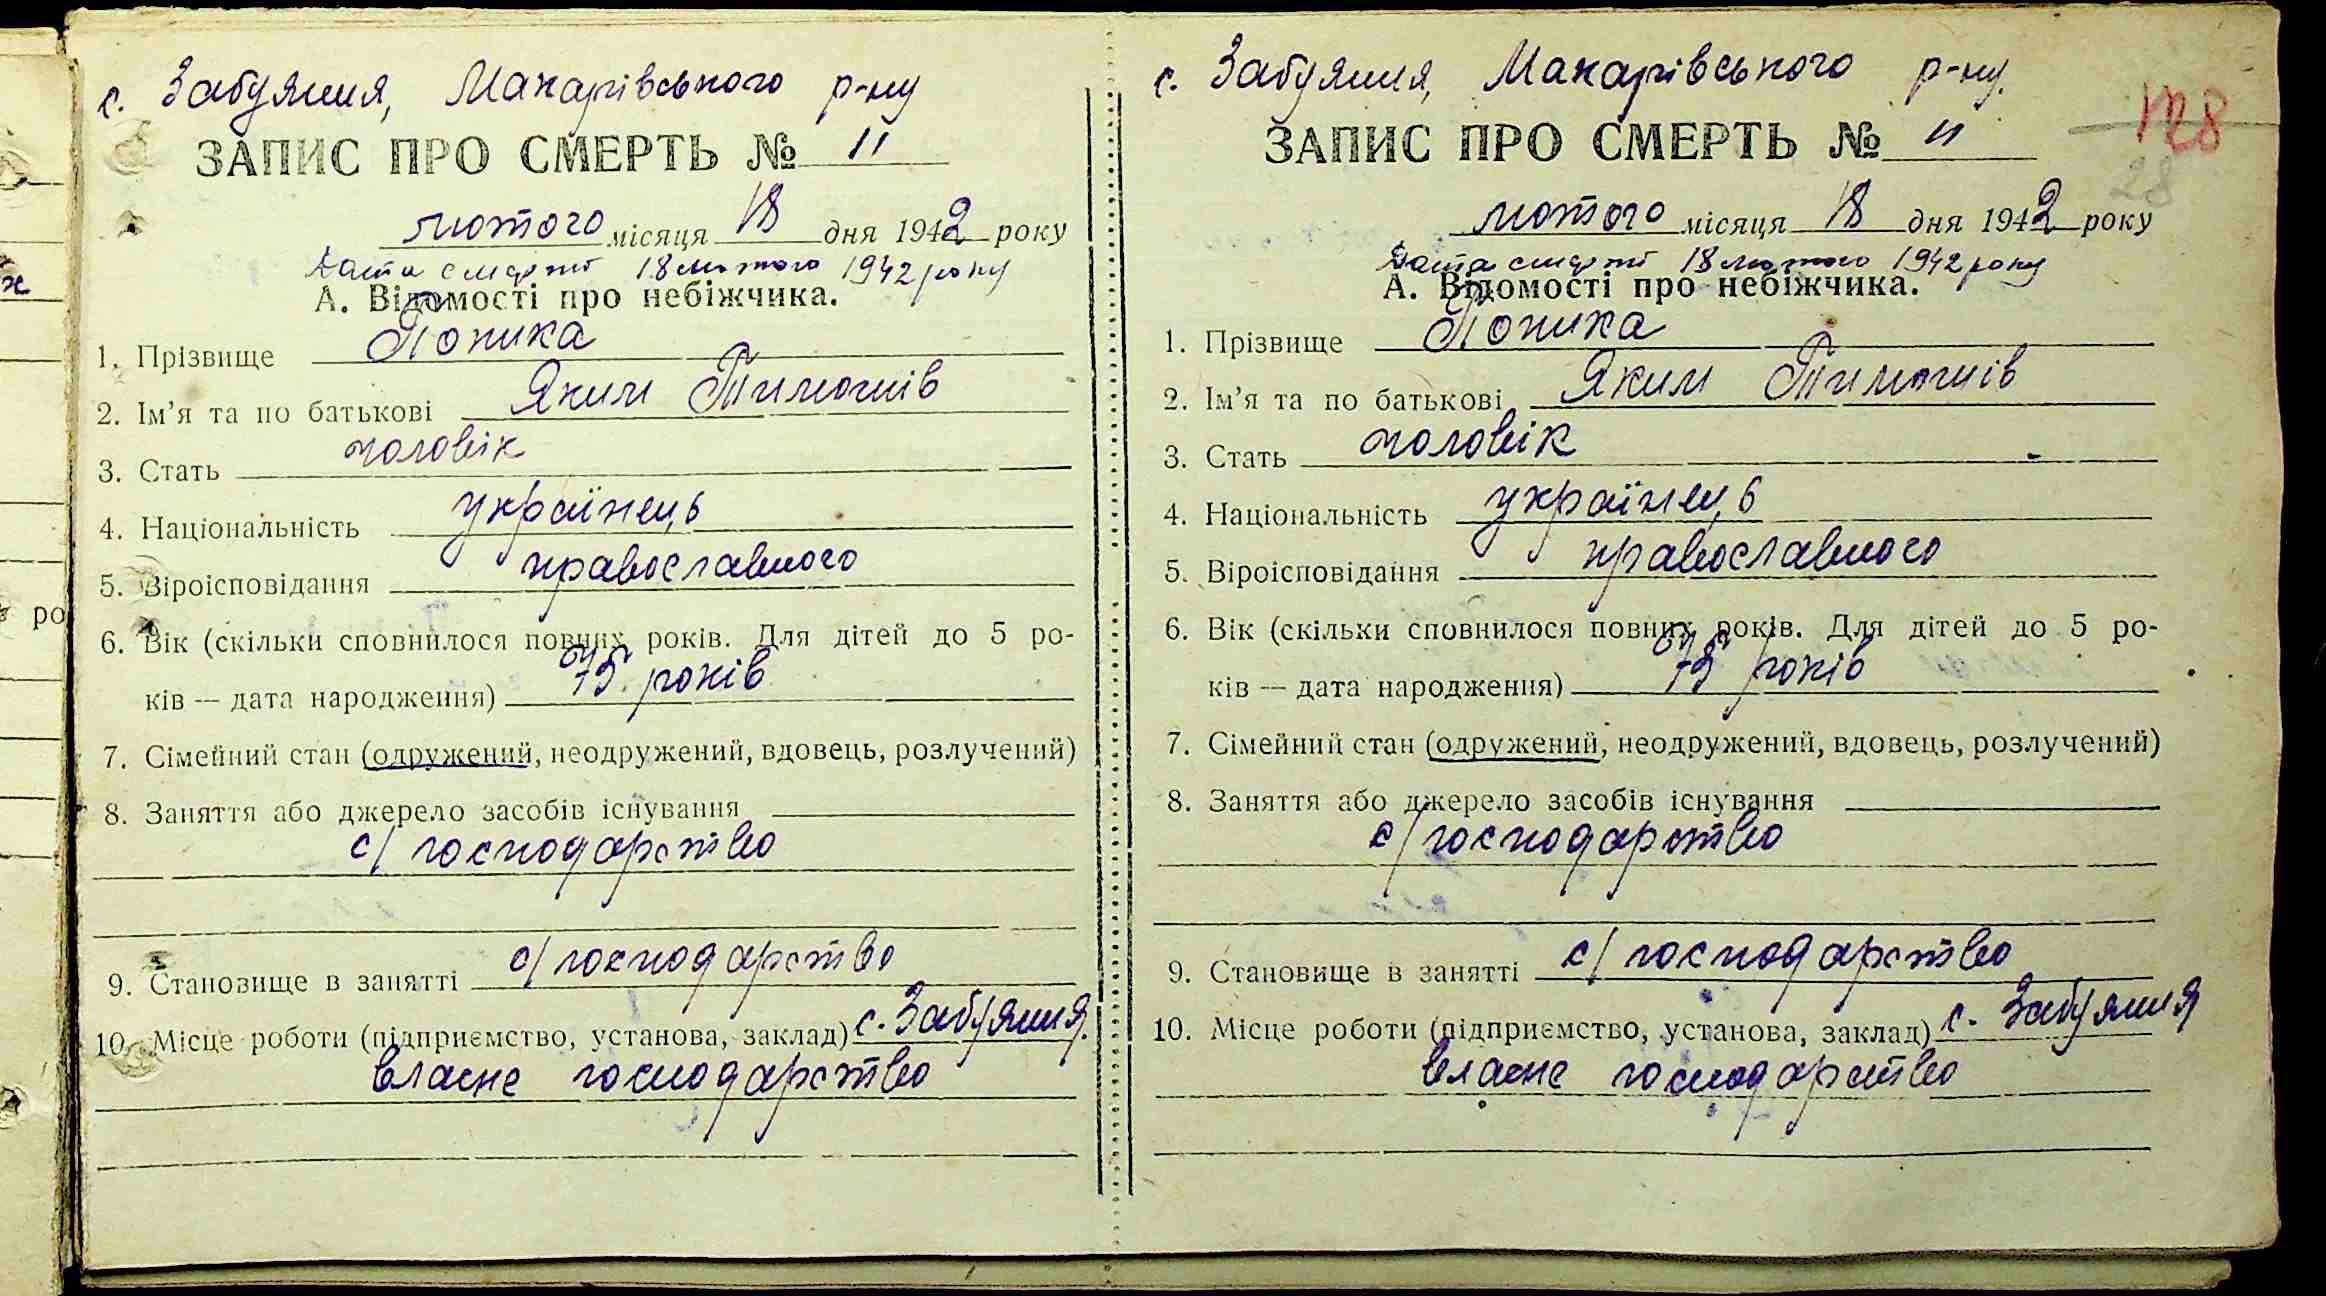 с. Забуяння, Макарівського р-ну
ЗАПИС ПРО СМЕРТЬ № 11
лютого місяця 18 дня 1942 року
Дата смерті 18 лютого 1942 року
А. Відомості про небіжчика.
1. Прізвище Попика
2. Ім'я та по батькові Яким Тимошів
3. Стать чоловік
4. Національність українець
5. Віроісповідання православного
6. Вік (скільки сповнилося повних років. Для дітей до 5 ро-
ків — дата народження) 75 років
7. Сімейний стан (одружений, неодружений, вдовець, розлучений)
8. Заняття або джерело засобів існування
с/господарство
9. Становище в занятті с/господарство
10. Місце роботи (підприємство, установа, заклад) с. Забуяння.
власне господарство
с. Забуяння, Макарівського р-ну.
128
28
ЗАПИС ПРО СМЕРТЬ № 11
лютого місяця 18 дня 1942 року
Дата смерті 18 лютого 1942 року
А. Відомості про небіжчика.
1. Прізвище Попика
2. Ім'я та по батькові Яким Тимошів
3. Стать чоловік
4. Національність українець
5. Віроісповідання православного
6. Вік (скільки сповнилося повних років. Для дітей до 5 ро-
ків — дата народження) 75 років
7. Сімейний стан (одружений, неодружений, вдовець, розлучений)
8. Заняття або джерело засобів існування
с/господарство
9. Становище в занятті с/господарство
10. Місце роботи (підприємство, установа, заклад) с. Забуяння
власне господарство